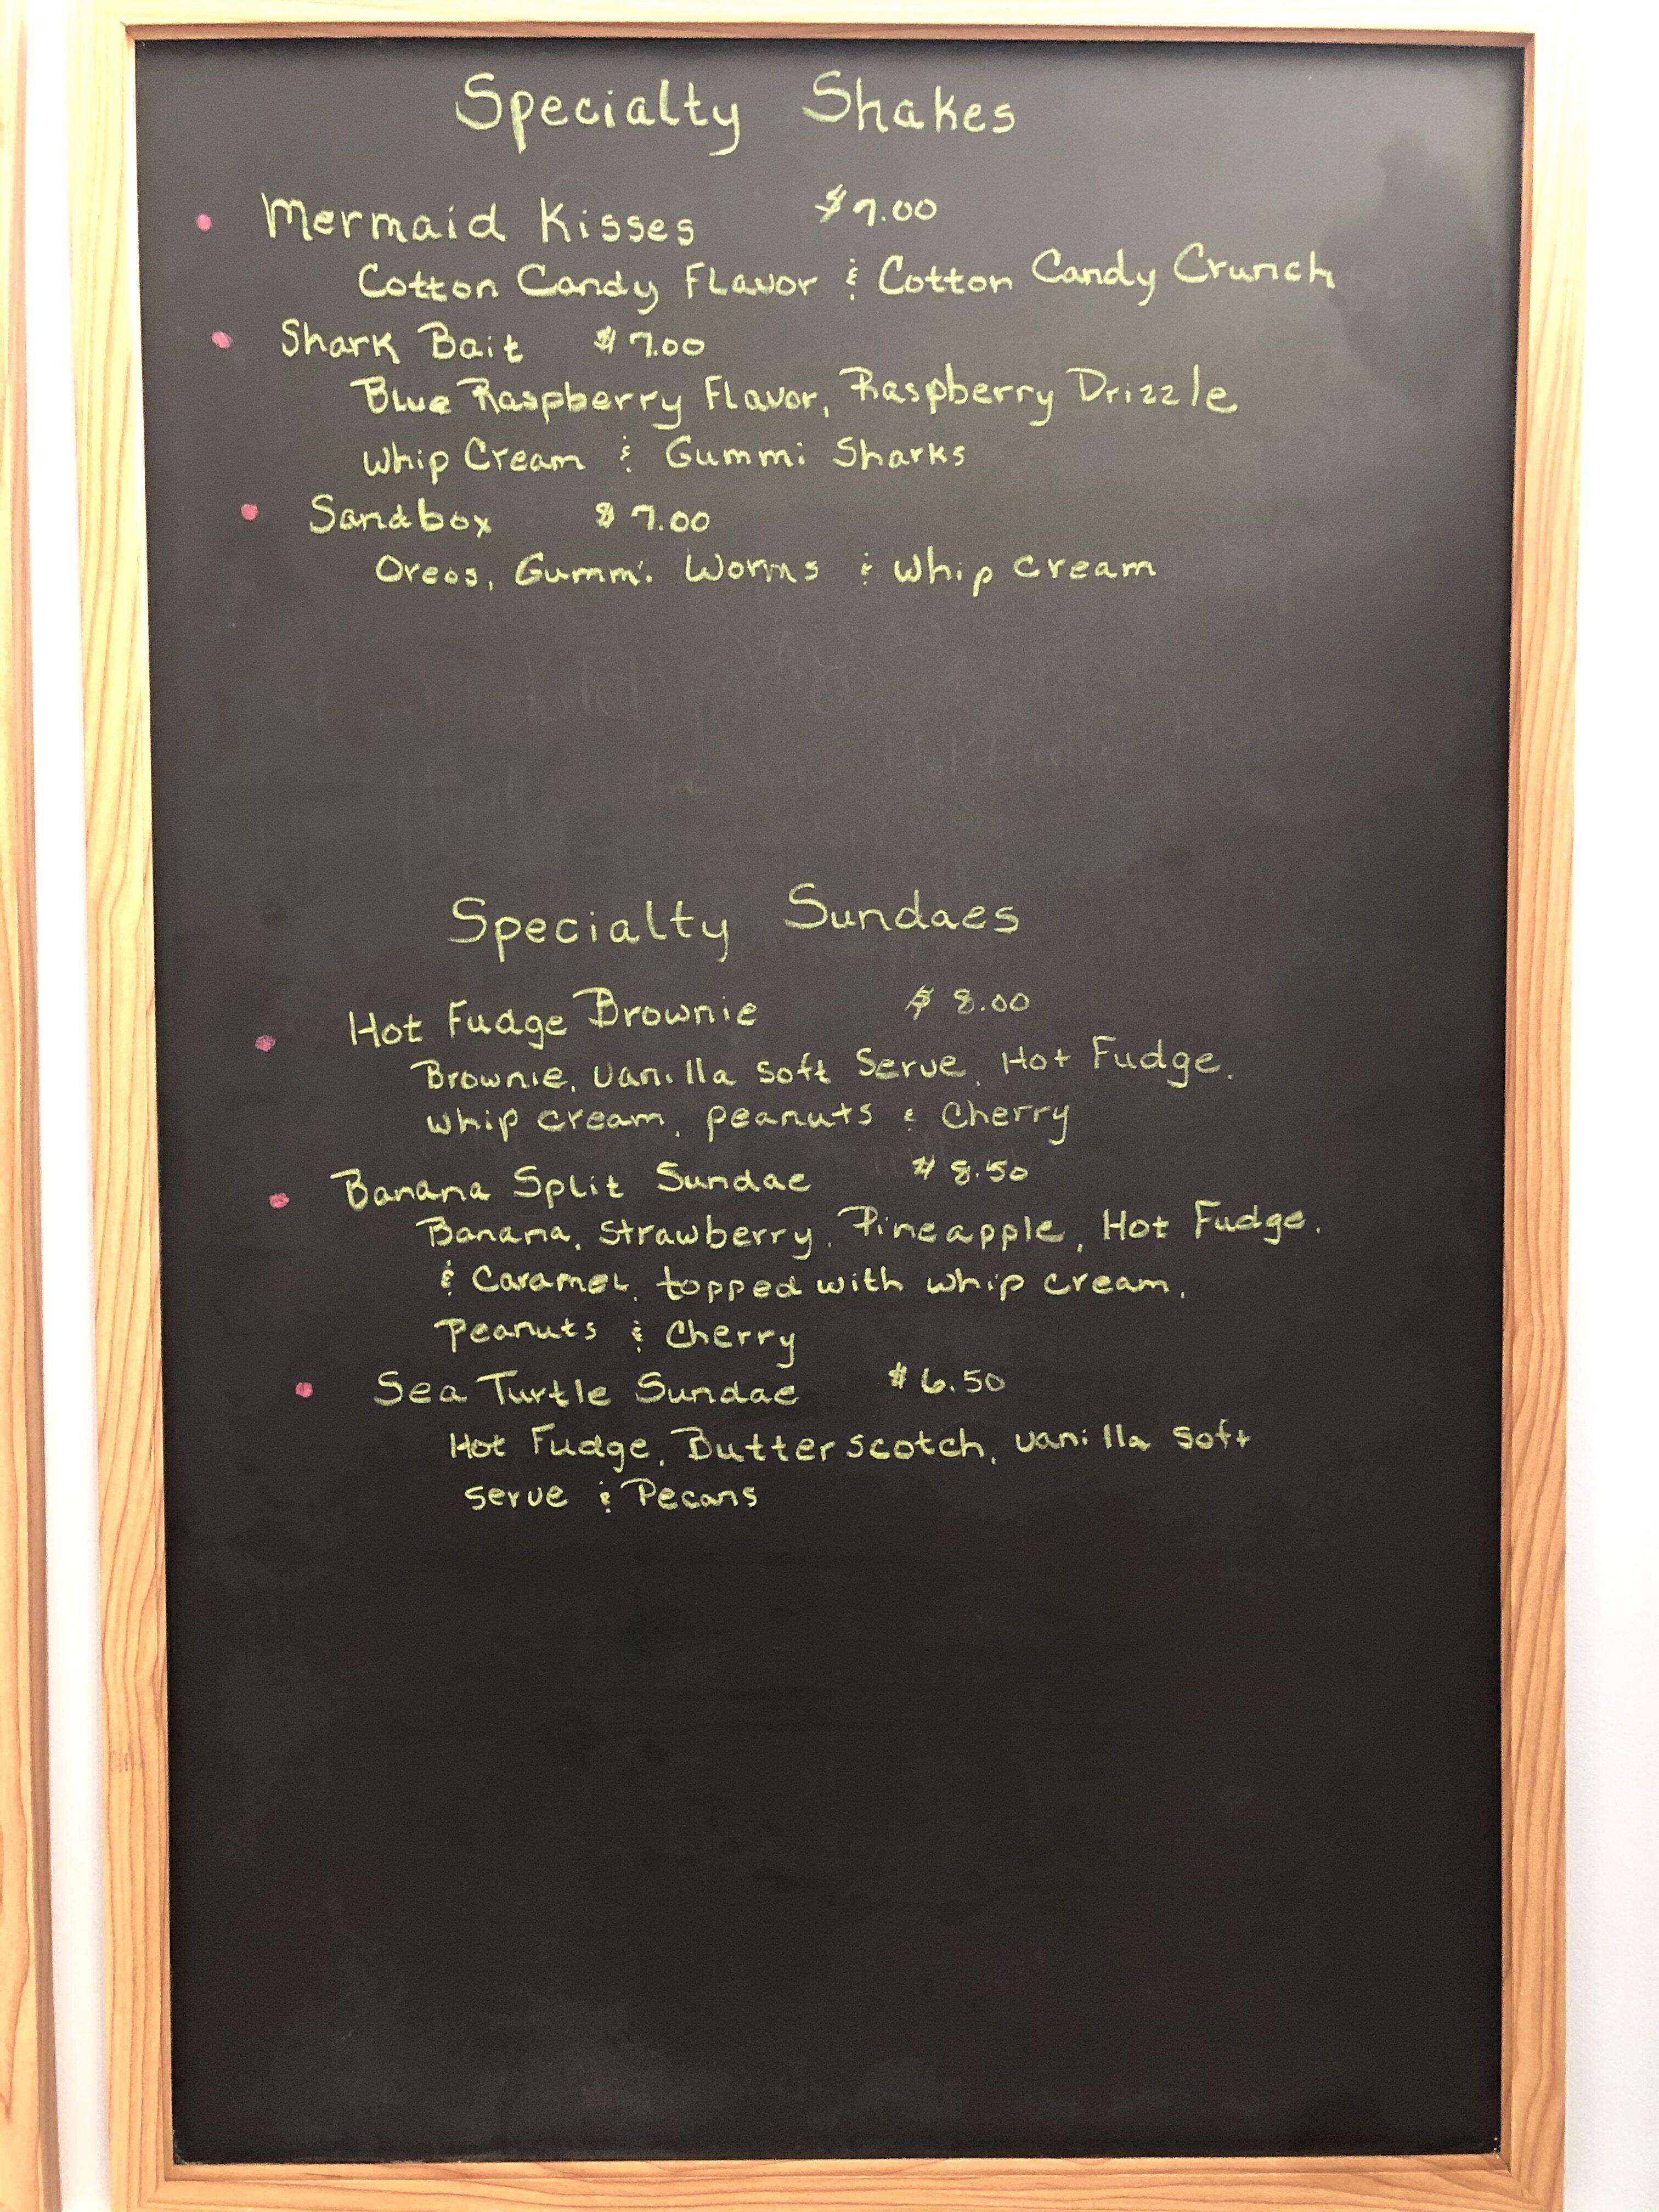 Specialty Shakes
• Mermaid Kisses $7.00
Cotton Candy Flavor & Cotton Candy Crunch
• Shark Bait $7.00
Blue Raspberry Flavor, Raspberry Drizzle
Whip Cream & Gummi Sharks
• Sandbox $7.00
Oreos, Gummi Worms & Whip cream
Specialty Sundaes
• Hot Fudge Brownie $8.00
Brownie, vanilla soft serve, Hot Fudge,
whip cream, peanuts & cherry
• Banana Split Sundae $8.50
Banana, strawberry, Pineapple, Hot Fudge,
& Caramel, topped with whip cream,
Peanuts & Cherry
• Sea Turtle Sundae $6.50
Hot Fudge, Butterscotch, vanilla soft
serve & Pecans